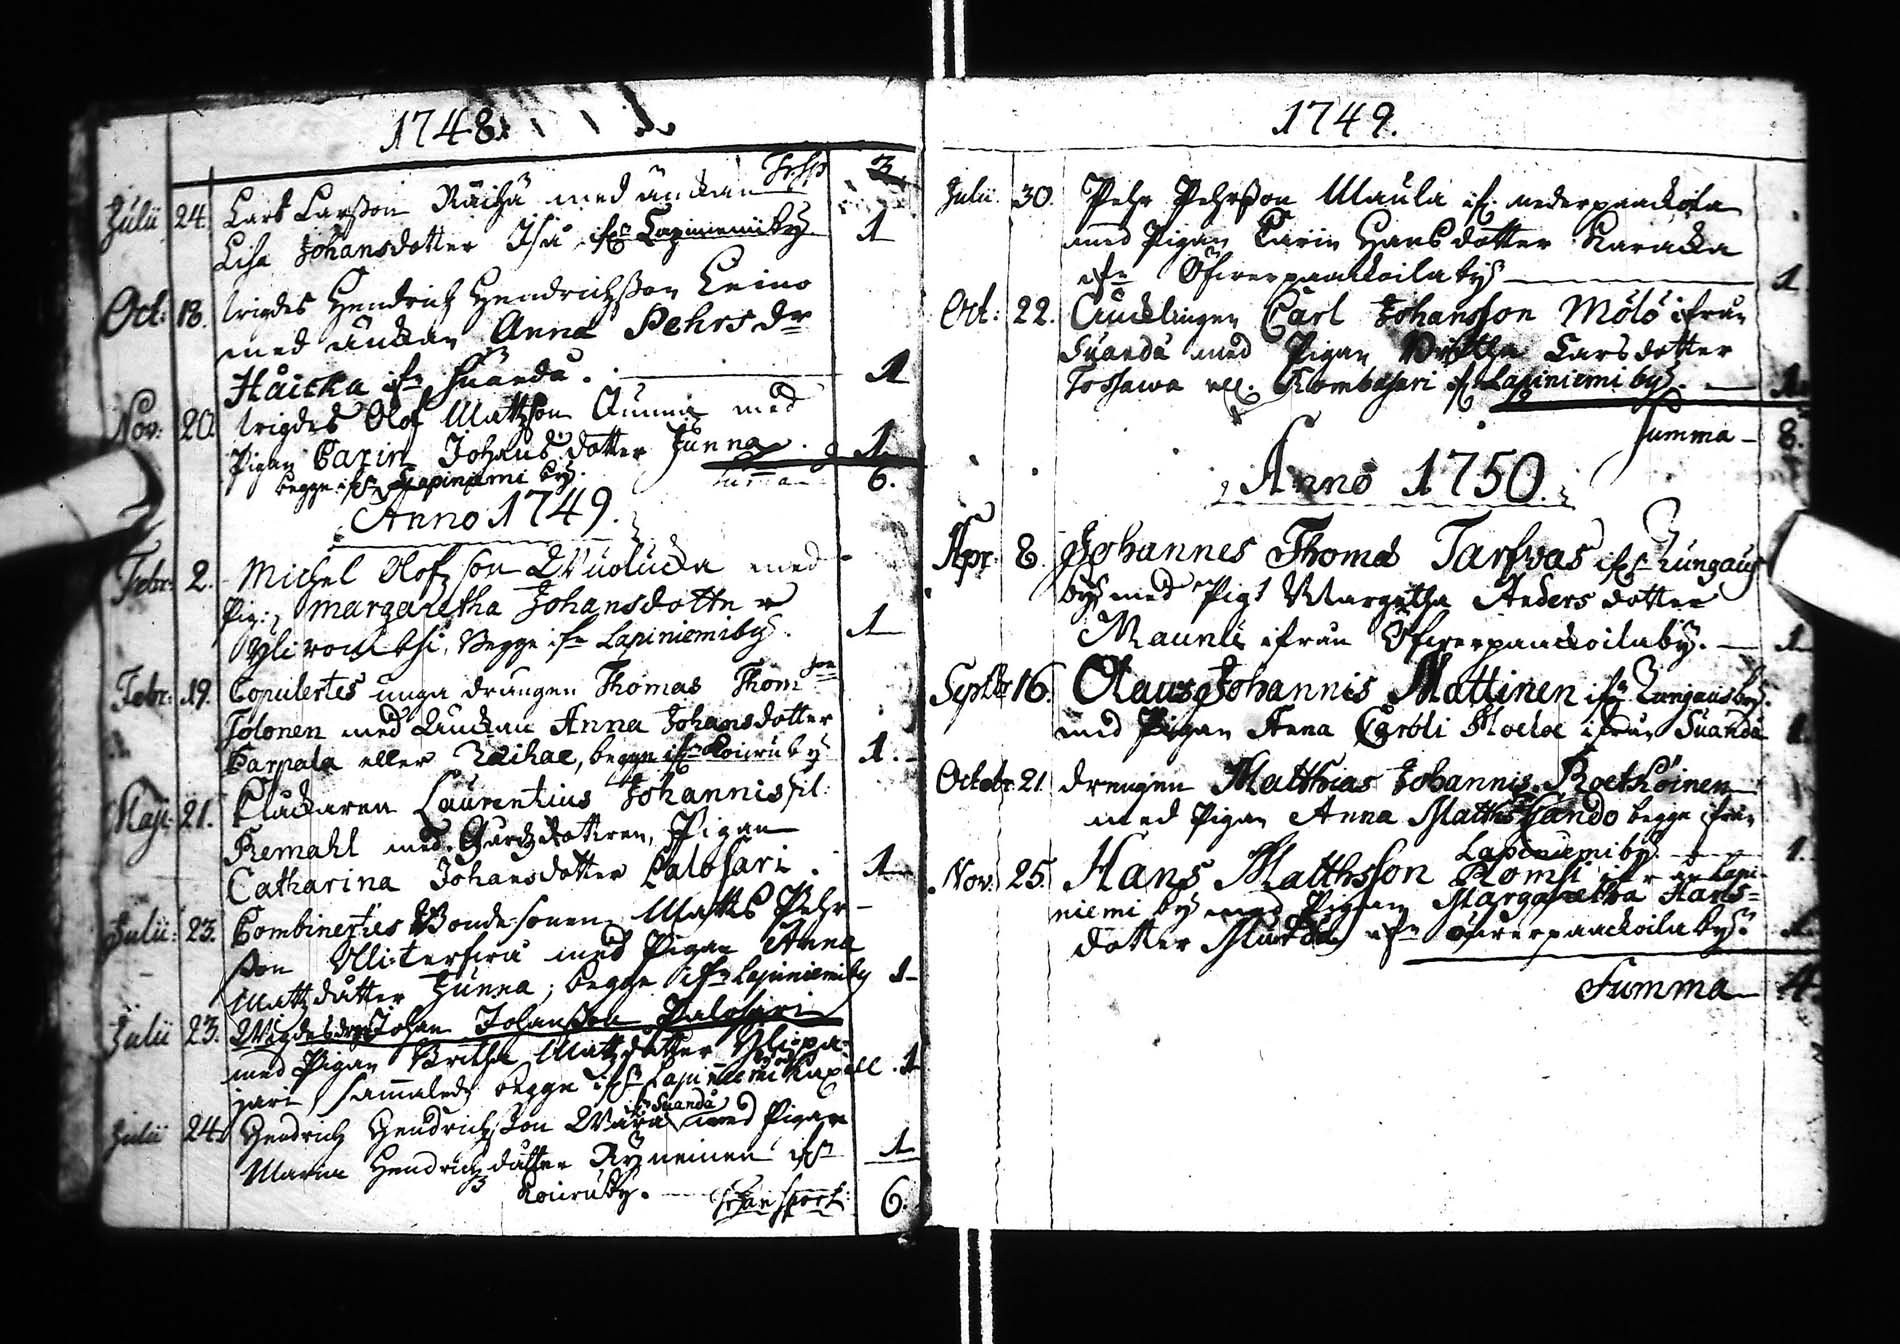 1748.
Trsp 3
Julii 24. Lars Larsson Räihä med änkan
Lisa Johansdotter Isu ifrn Lapiniemiby 1
Oct: 18. wigdes Hendrich Hendrichsson Leino
med änkan Anna Pehrsdr
Häicka ifrn Suanda. 1
Nov: 20. wigdes Olof Mattsson med
Pigan Carin Johansdotter Junna. 1
begge ifrn Lapiniemi by. Summa 6.
Anno 1749.
Febr: 2. Michel Olofsson Wuolucka med
Pig: Margaretha Johansdotter
Ylirombsi, Begge ifrn Lapiniemiby. 1
Febr: 19. Copulertes unga drängen Thomas Thomson
Tolonen med Änckan Anna Johansdotter
Carpala eller Raihae, begge ifrn Kouruby 1.
Maji 21. Klåckaren Laurentius Johannis fil:
Remahl med Pigan
Catharina Johansdotter Palosari. 1
Julii 23. Combinertes Bonde-sonen Matts Pehr-
son med Pigan Anna
Mattsdåtter Junna, begge ifrn Lapiniemiby 1
Julii 23. Wigdes dr. Johan Johansson Palosari
med Pigan Britha Mattsdotter Ylipa-
jari sammaledz begge ifrn Lapiniemi Capell. 1
Julii 24. Hendrich Hendrichsson Wara ifrn Suanda med Pigan
Maria Hendrichsdåtter Ryneinen ifrn 1
Kouruby. Transport: 6.
1749.
Julii 30. Pehr Pehrsson Maula if. nederpaackola
med Pigan Carin Hansdotter Karacka
ifrn Öfwerpaackoilaby 1.
Oct: 22. Änklingen Carl Johansson Mölö ifrån
Suanda med Pigan Britha Larsdotter
Tossawa vel. Kombsari if. Lapiniemi by. 1
Summa 8.
Anno 1750.
Apr. 8. Johannes Thomæ Tarfwas ifrn Kungaus
by med Pigan Margetha Andersdotter
Maunu ifrån Öfwerpaackoilaby. 1
Septbr 16. Olaus Johannis Mattinen ifrn Kungausby.
med Pigan Anna Caroli ifrån Suanda 1.
Octobr 21. drengen Matthias Johannis Roethöinen
med Pigan Anna Matths Lando begge ifrån
Lapiniemiby. 1.
Nov. 25. Hans Matthsson Romsi ifrn Lapi-
niemi by med Pigan Margaretha Hans-
dotter ifrn öfwerpaackoilaby. 1
Summa 4.